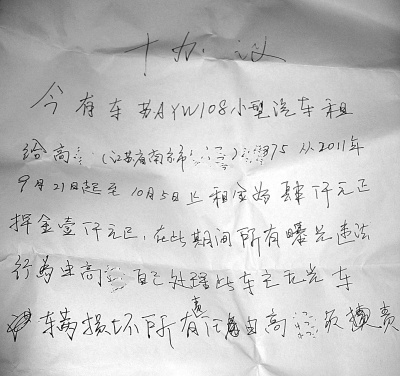 协议
今有车苏AYW108小型汽车租
给高(江苏省南京市)75从2011年
9月21日起至10月5日止租金为肆仟元正
押金壹仟元正,在此期间所有曝光违法
行为由高自己处理此车主无光车
车辆损坏所有责任由高负责